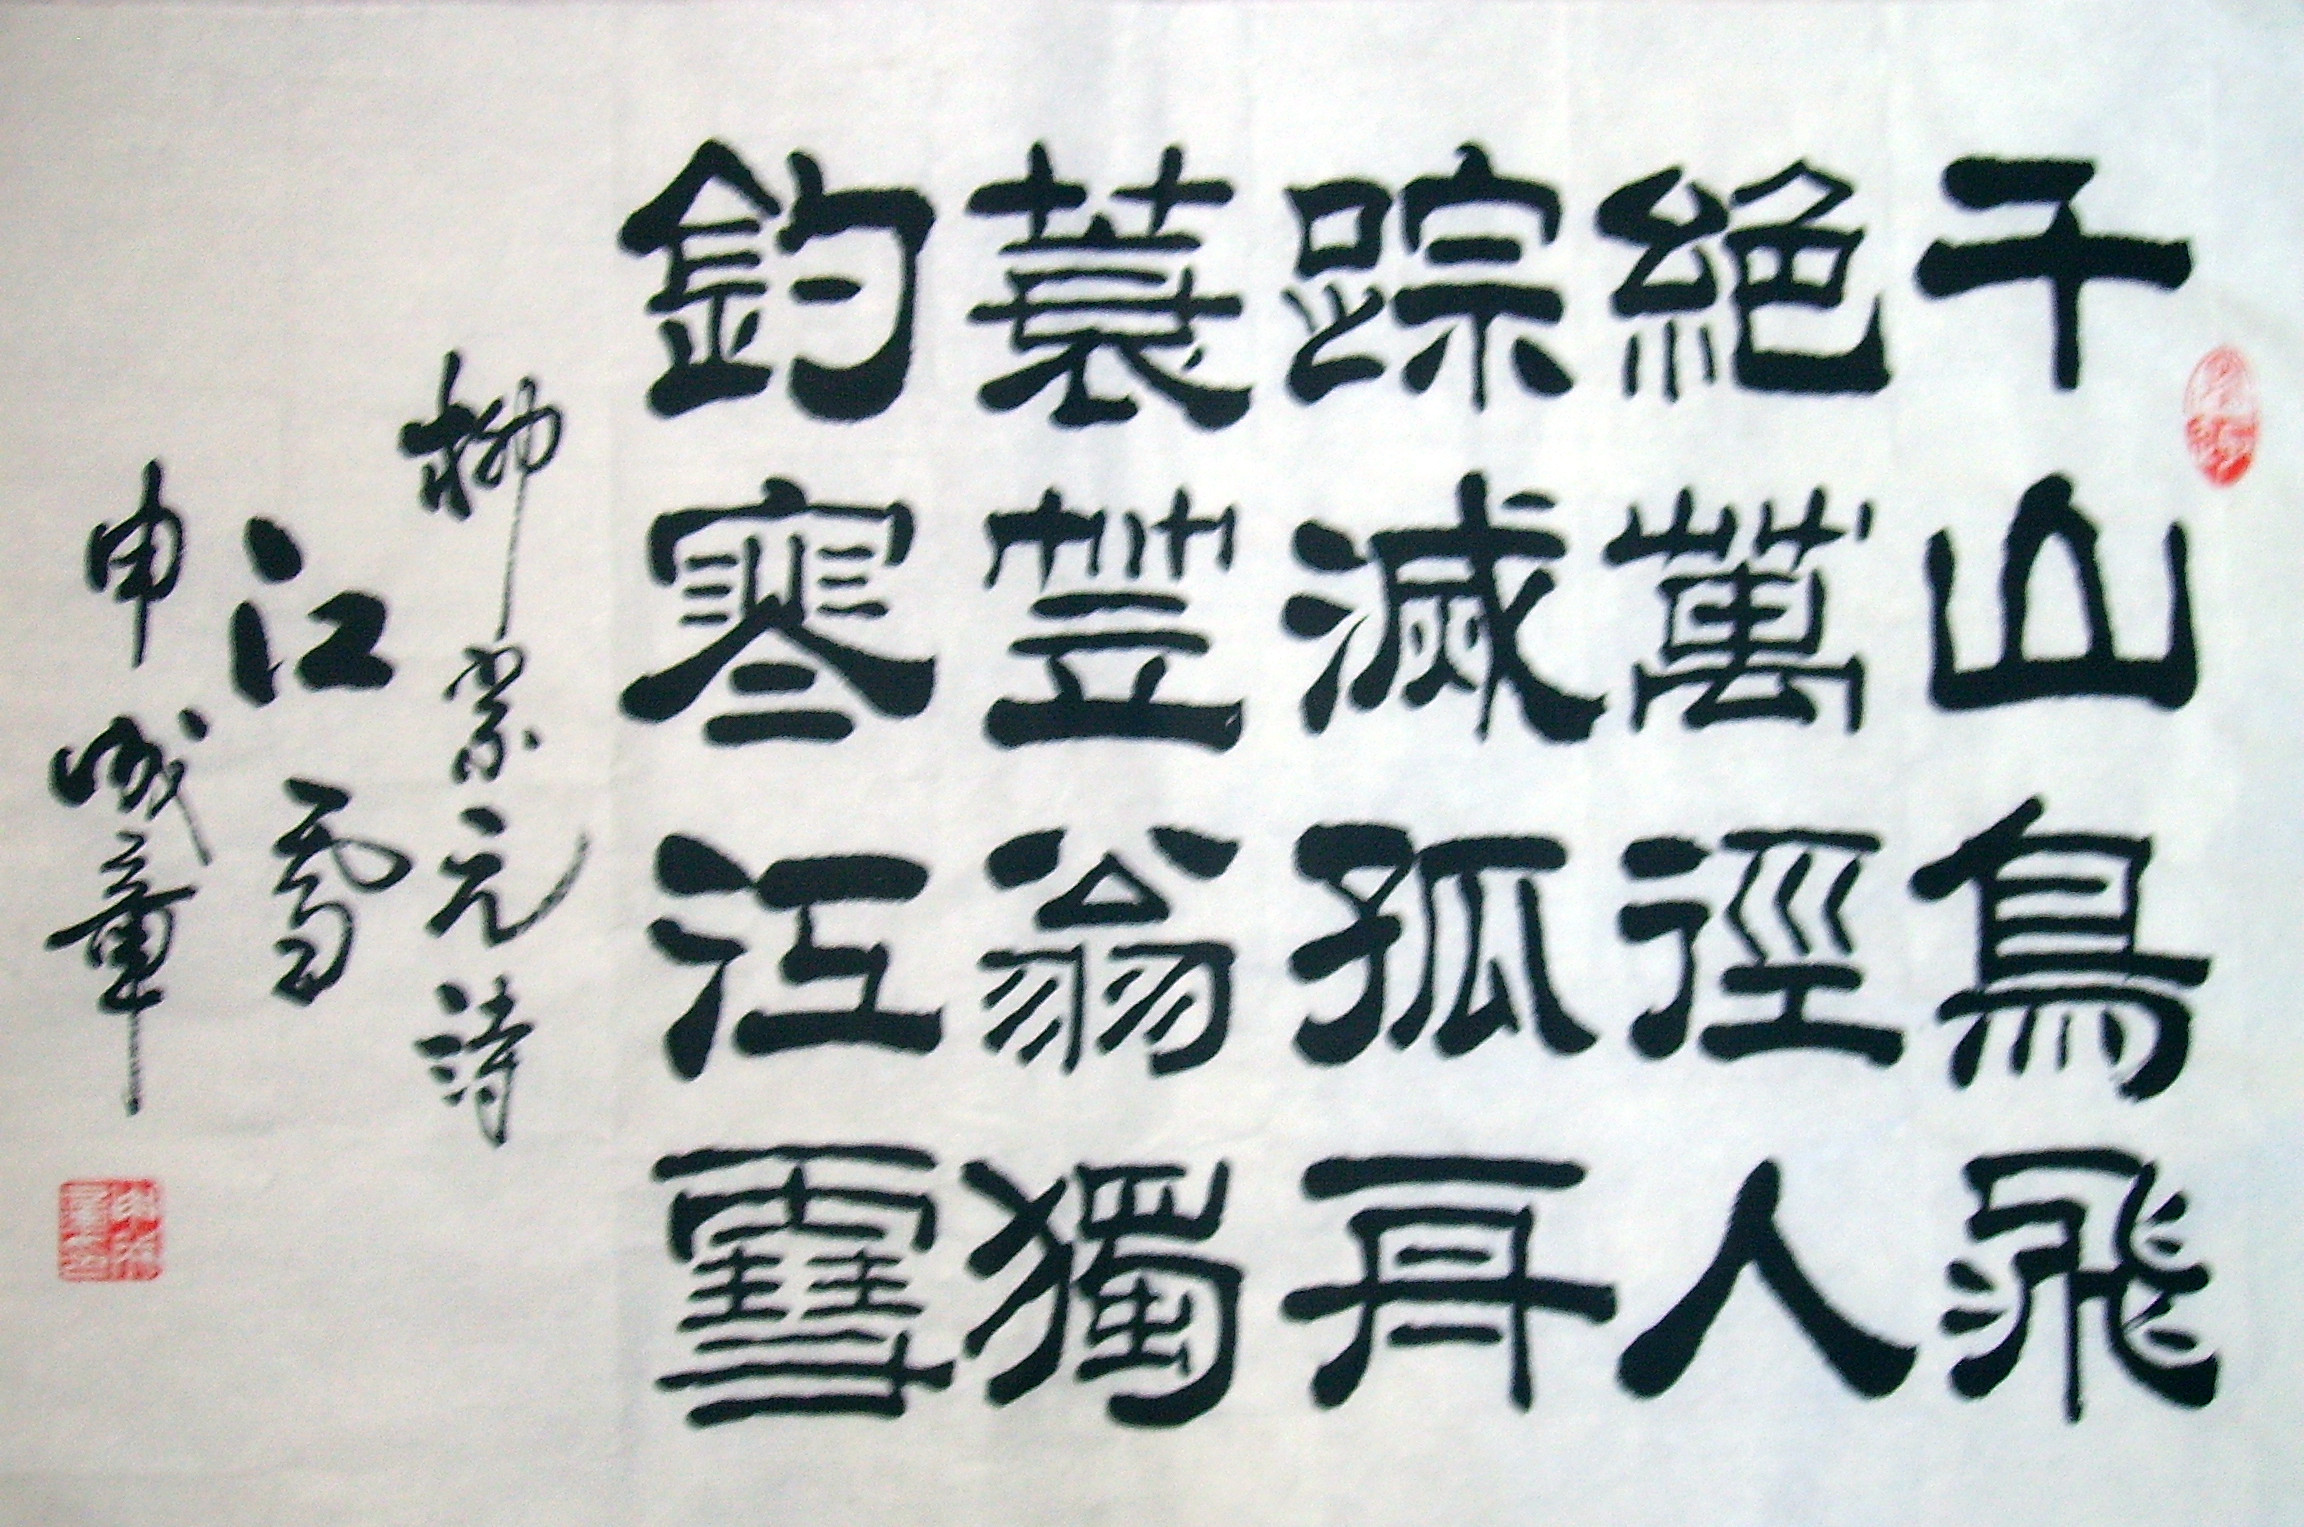 千山鳥飛
絕萬徑人
踪滅孤舟
蓑笠翁獨
釣寒江雪
柳宗元詩
江雪
申成章